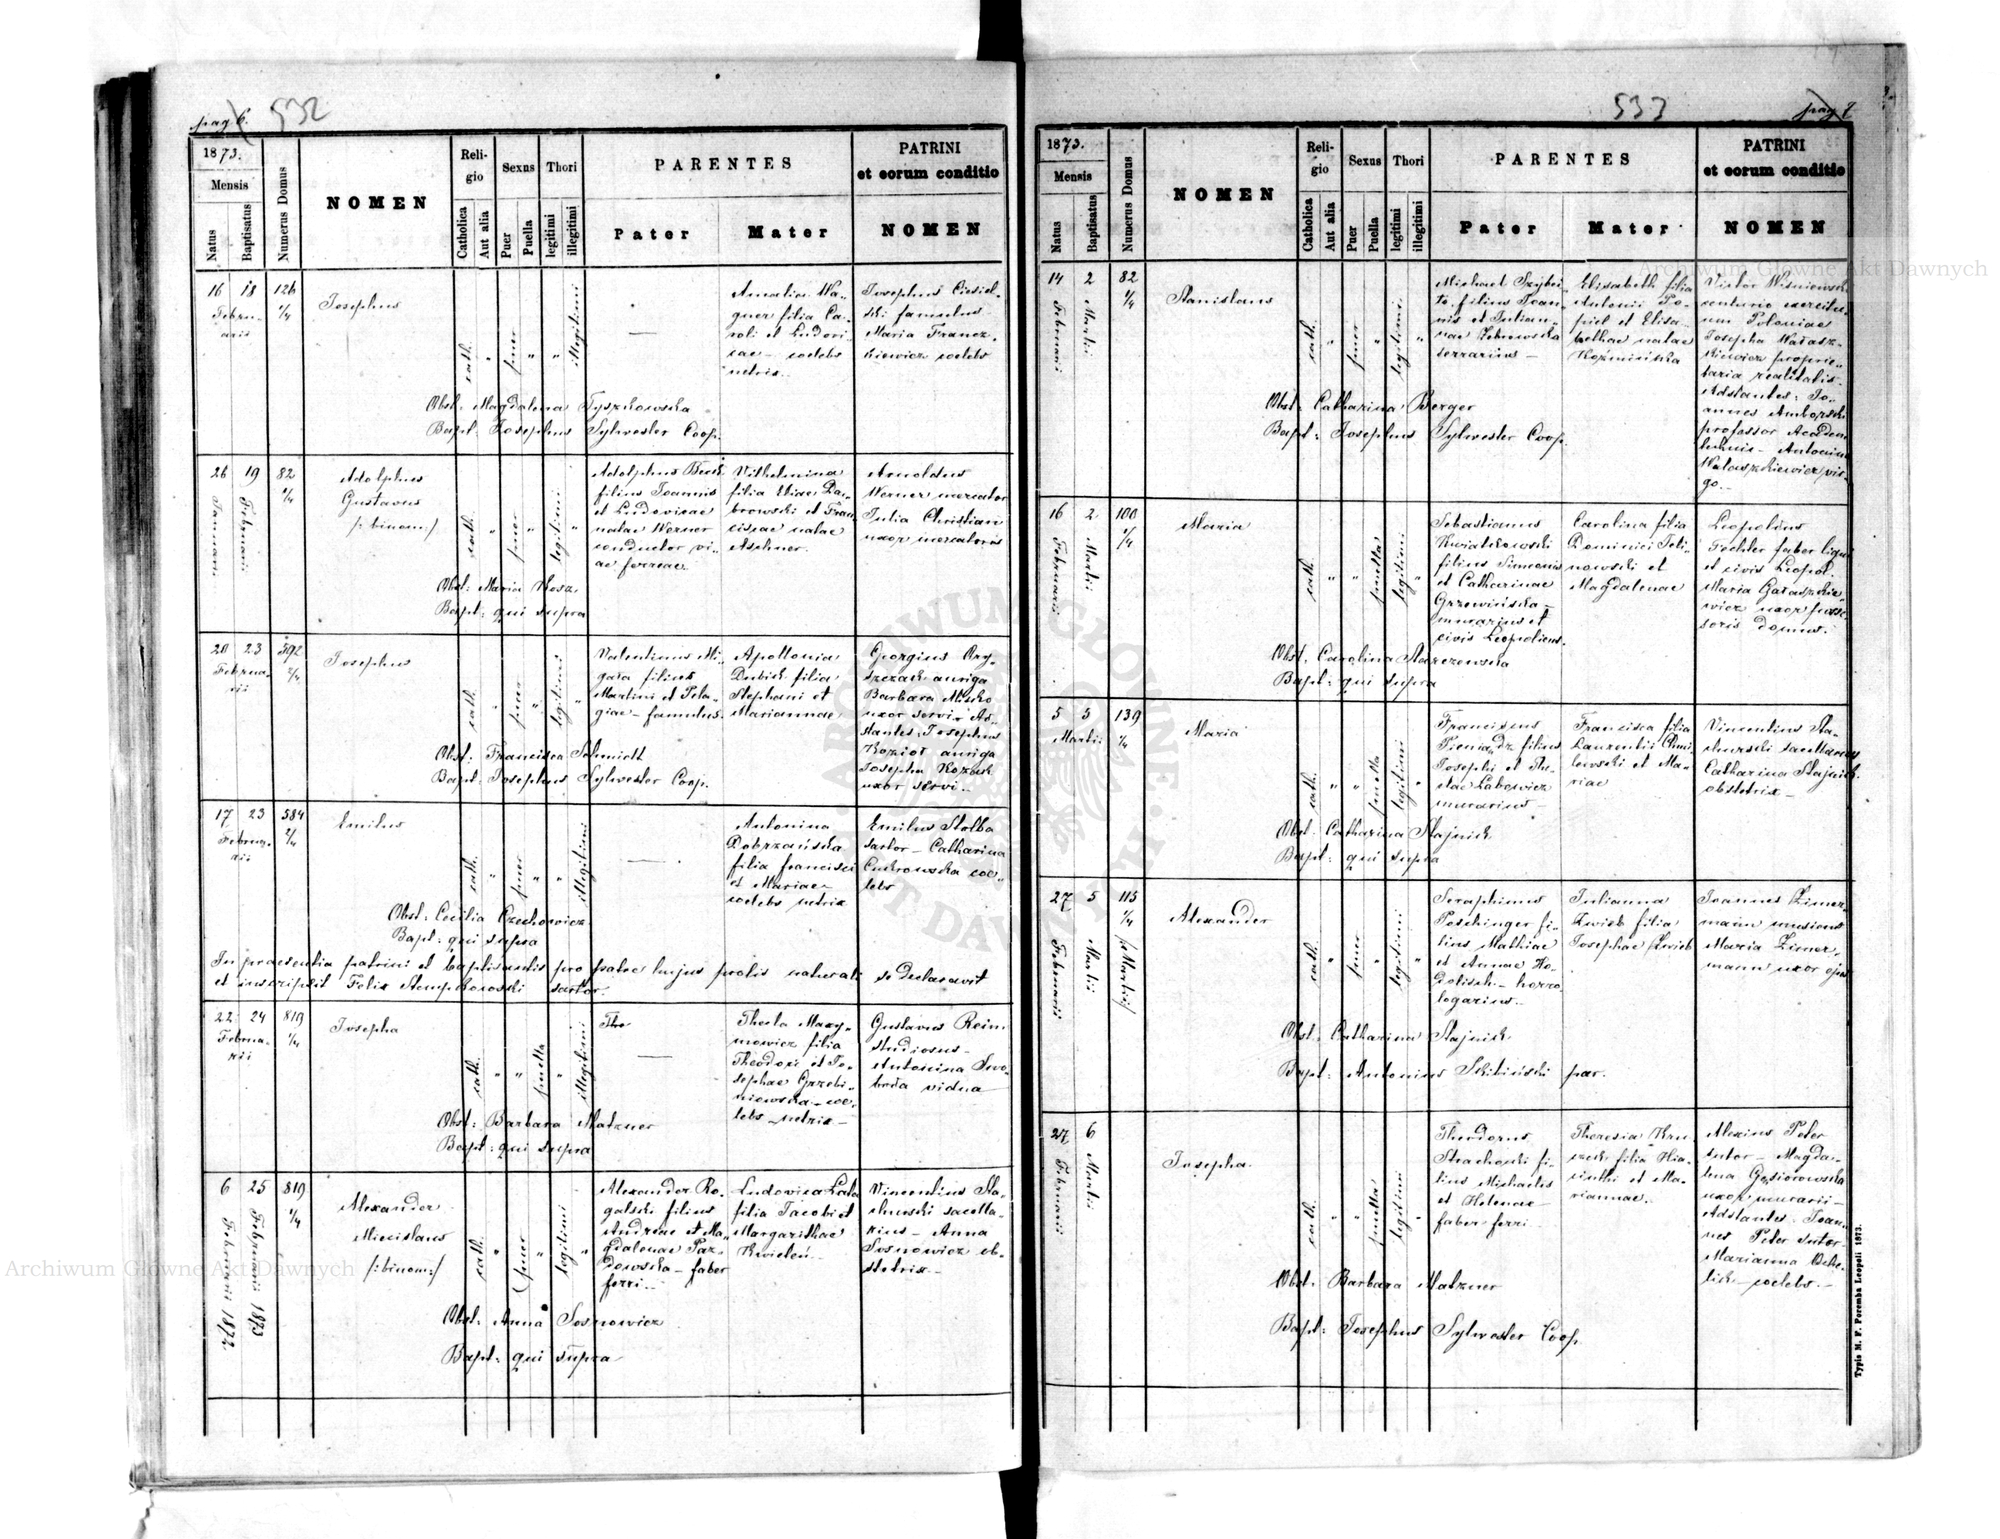 pag 6. 532
1873.
Mensis
Natus
Baptisatus
Numerus Domus
NOMEN
Reli-
gio
Catholica
Aut alia
Sexus
Puer
Puella
Thori
legitimi
illegitimi
PARENTES
Pater
Mater
PATRINI
et eorum conditio
NOMEN
16 18 126
2/4
Februarii
Josephus
cath. " puer " " illegitimi
—
Amalia Wa-
gner filia Ca-
roli et Ludovi-
cae – coelebs
netrix.
Josephus Ciesiel-
ski famulus
Maria Francz-
kiewicz coelebs
Obst: Magdalena Tyszkowska
Bapt: Josephus Sylwester Coop.
26 19 82
2/4
Januarii
Februarii
Adolphus
Gustavus
/:binom:/
cath. " puer " legitimi "
Adolphus Beck
filius Joannis
et Ludovicae
natae Werner
conductor vi-
ae ferreae
Wilhelmina
filia Eliae Dą-
browski et Fran-
ciscae natae
Aschner.
Arnoldus
Werner mercator
Julia Christian
uxor mercatoris
Obst: Maria Kosz.
Bapt: qui supra
20 23 592
2/4
Februa-
rii
Josephus
cath. " puer " legitimi "
Valentinus Mi-
gara filius
Martini et Pela-
giae – famulus.
Apollonia
Dubik filia
Stephani et
Mariannae
Georgius Ory-
szczak auriga
Barbara Misko
uxor servi – Ad-
stantes: Josephus
Kozioł auriga
Josepha Kozak
uxor servi –
Obst: Francisca Schmidt
Bapt: Josephus Sylwester Coop.
17 23 584
2/4
Februa-
rii
Emilus
cath. " puer " " illegitimi
—
Antonina
Dobrzańska
filia francisci
et Mariae –
coelebs netrix
Emilus Stolba
sartor – Catharina
Cukrowska coe-
lebs
Obst: Cecilia Czechowicz
Bapt: qui supra
In praesentia patrini et baptisantis pro patre hujus prolis naturali se declaravit
et inscripsit Felix Stempkowski sartor.
22 24 819
1/4
Februa-
rii
Josepha
cath. " " puella " illegitimi
The
—
Thecla Maxy-
mowicz filia
Theodori et Jo-
sephae Grzebi-
niewska – coe-
lebs – netrix –
Gustavus Reim
studiosus –
Antonina Swo-
boda vidua
Obst: Barbara Matzner
Bapt: qui supra
6 25 819
1/4
Februarii 1872.
Februarii 1873
Alexander
Miecislaus
/:binom:/
cath. " puer " legitimi "
Alexander Ro-
galski filius
Andreae et Ma-
gdalenae Paz-
dowska – faber
ferri –
Ludovica Lata
filia Jacobi et
Margarithae
Kwiecień –
Vincentius Sta-
churski sacella-
rius – Anna
Sosnowicz ob-
stetrix –
Obst: Anna Sosnowicz
Bapt: qui supra
533 pag 7
1873.
Mensis
Natus
Baptisatus
Numerus Domus
NOMEN
Reli-
gio
Catholica
Aut alia
Sexus
Puer
Puella
Thori
legitimi
illegitimi
PARENTES
Pater
Mater
PATRINI
et eorum conditio
NOMEN
14 2 82
1/4
Februarii
Martii
Stanislaus
cath. " puer " legitimi "
Michael
filius Joan-
nis et Julian-
nae
serrarius –
Elisabeth filia
Antonii Po-
piel et Elisa-
bethae natae
Koźmińska
Victor Wiśniewski
centurio exercitu-
um Poloniae
Josepha Wałasz-
kiewicz proprie-
taria realitatis.
Adstantes: Jo-
annes Amborski
professor Academ.
technic – Antonina
Wałaszkiewicz vir-
go –
Obst: Catharina Berger
Bapt: Josephus Sylwester Coop.
16 2 100
1/4
Februarii
Martii
Maria
cath. " " puella legitimi "
Sebastianus
Kwiatkowski
filius Simeonis
et Catharinae
Grzewińska –
murarius et
civis Leopoliens.
Carolina filia
Dominici Joli-
nowski et
Magdalenae
Leopoldus
Fechter faber ligni
et civis Leopol.
Maria Garaszkie-
wicz uxor posse-
soris domus.
Obst: Carolina Starczewska
Bapt: qui supra
5 5 139
1/4
Martii
Maria
cath. " " puella legitimi "
Franciscus
Pieniądz filius
Josephi et The-
clae Labowicz
murarius –
Francisca filia
Laurentii Chmi-
lowski et Ma-
riae
Vincentius Sta-
churski sacellarius
Catharina Stajnich
obstetrix –
Obst: Catharina Stajnich
Bapt: qui supra
27 5 115
1/4
Februarii
Martii
/:Martii:/
Alexander
cath. " puer " legitimi "
Seraphinus
Peschinger fi-
lius Mathiae
et Annae Ho-
dolitsch – horo-
logarius –
Julianna
Zwieb filia
Josephae Zwieb
Joannes Zimer-
mann musicus
Maria Zimer-
mann uxor ejus
Obst: Catharina Stajnich
Bapt: Antonius Skibiński par.
27 6
Februarii
Martii
Josepha
cath. " " puella legitimi "
Theodorus
Strachocki fi-
lius Michaelis
et Helenae
faber ferri –
Theresia Kru-
czek filia Hia-
cinthi et Ma-
riannae –
Alexius Peter
sutor – Magda-
lena Gąsiorowska
uxor murarii –
Adstantes: Joan-
nes Peter sutor
Marianna
coelebs –
Obst: Barbara Matzner
Bapt: Josephus Sylwester Coop.
Typis M. F. Poremba Leopoli 1873.
Archiwum Główne Akt Dawnych
Archiwum Główne Akt Dawnych
ARCHIWUM GŁÓWNE AKT DAWNYCH